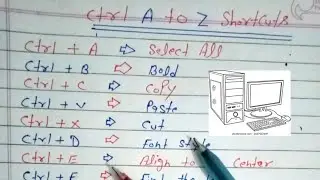 Ctrl A to Z Shortcuts
Ctrl + A ⇨ Select All
Ctrl + B ⇨ Bold
Ctrl + C ⇨ Copy
Ctrl + V ⇨ Paste
Ctrl + X ⇨ Cut
Ctrl + D ⇨ Font
Ctrl + E ⇨ Align to Center
Ctrl + F